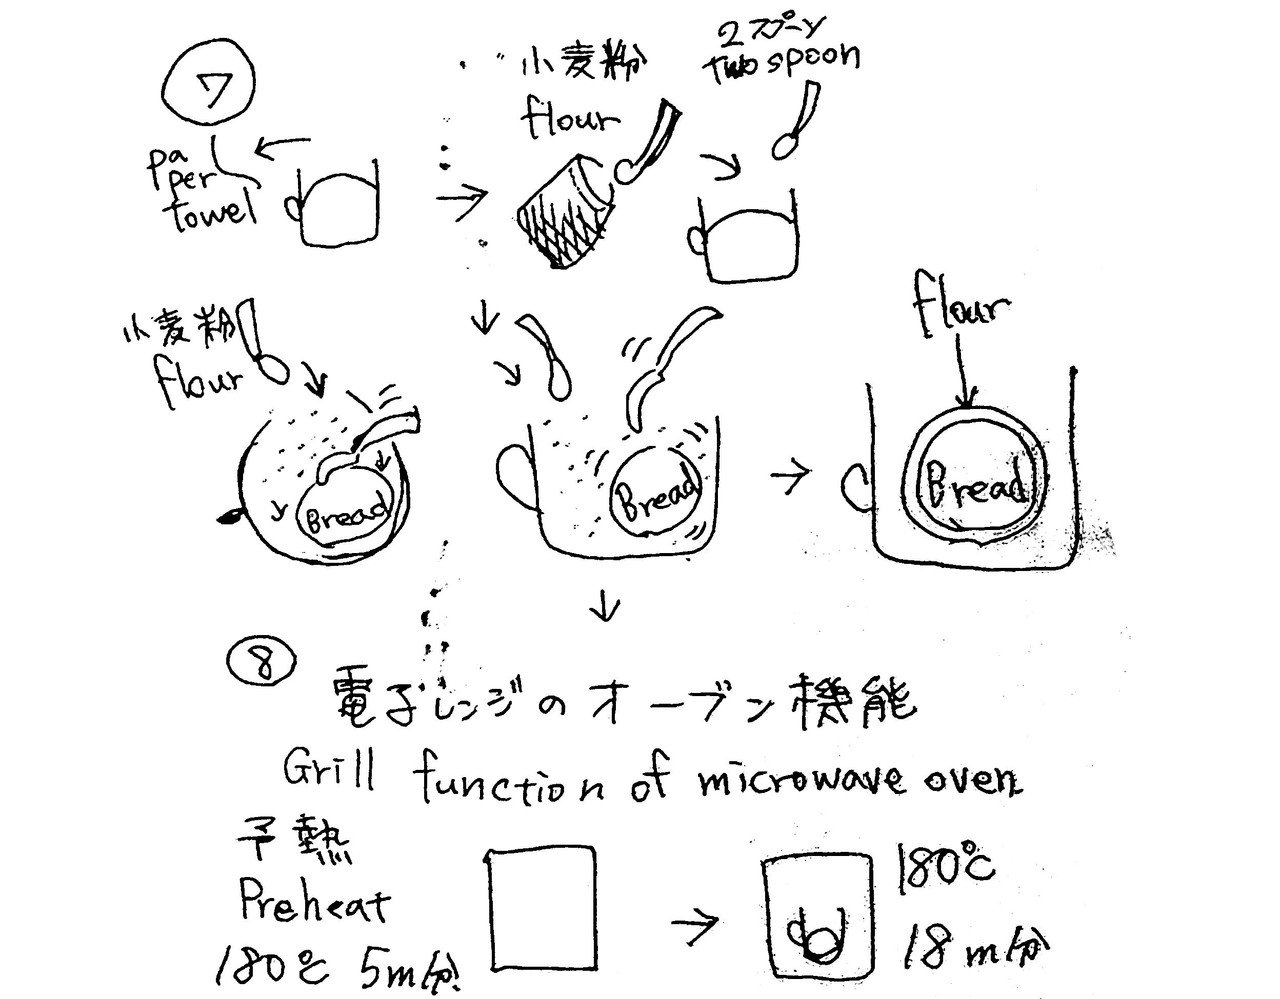 7
pa
per
towel
小麦粉
flour
2スプーン
two spoon
小麦粉
flour
Bread
Bread
flour
Bread
8
電子レンジのオーブン機能
Grill function of microwave oven
予熱
Preheat
180℃ 5m分
180℃
18m分